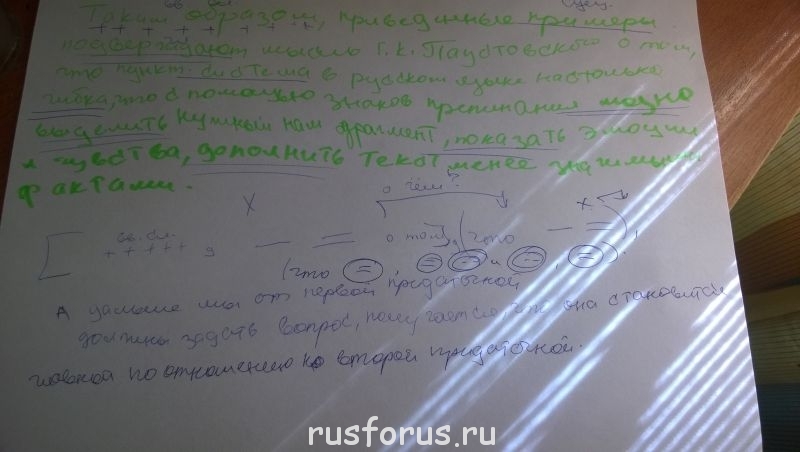 вв. сл.
Таким образом, приведенные примеры
подтверждают мысль Г.К. Паустовского о том,
что пункт. система в русском языке настолько
гибка, что с помощью знаков препинания можно
выделить нужный нам фрагмент, показать эмоции
и чувства, дополнить текст менее значимыми
фактами.
о чём?
X X
вв. сл. о том, что
(что
А дальше мы от первой придаточной
должны задать вопрос, получается, что она становится
главной по отношению ко второй придаточной.
rusforus.ru